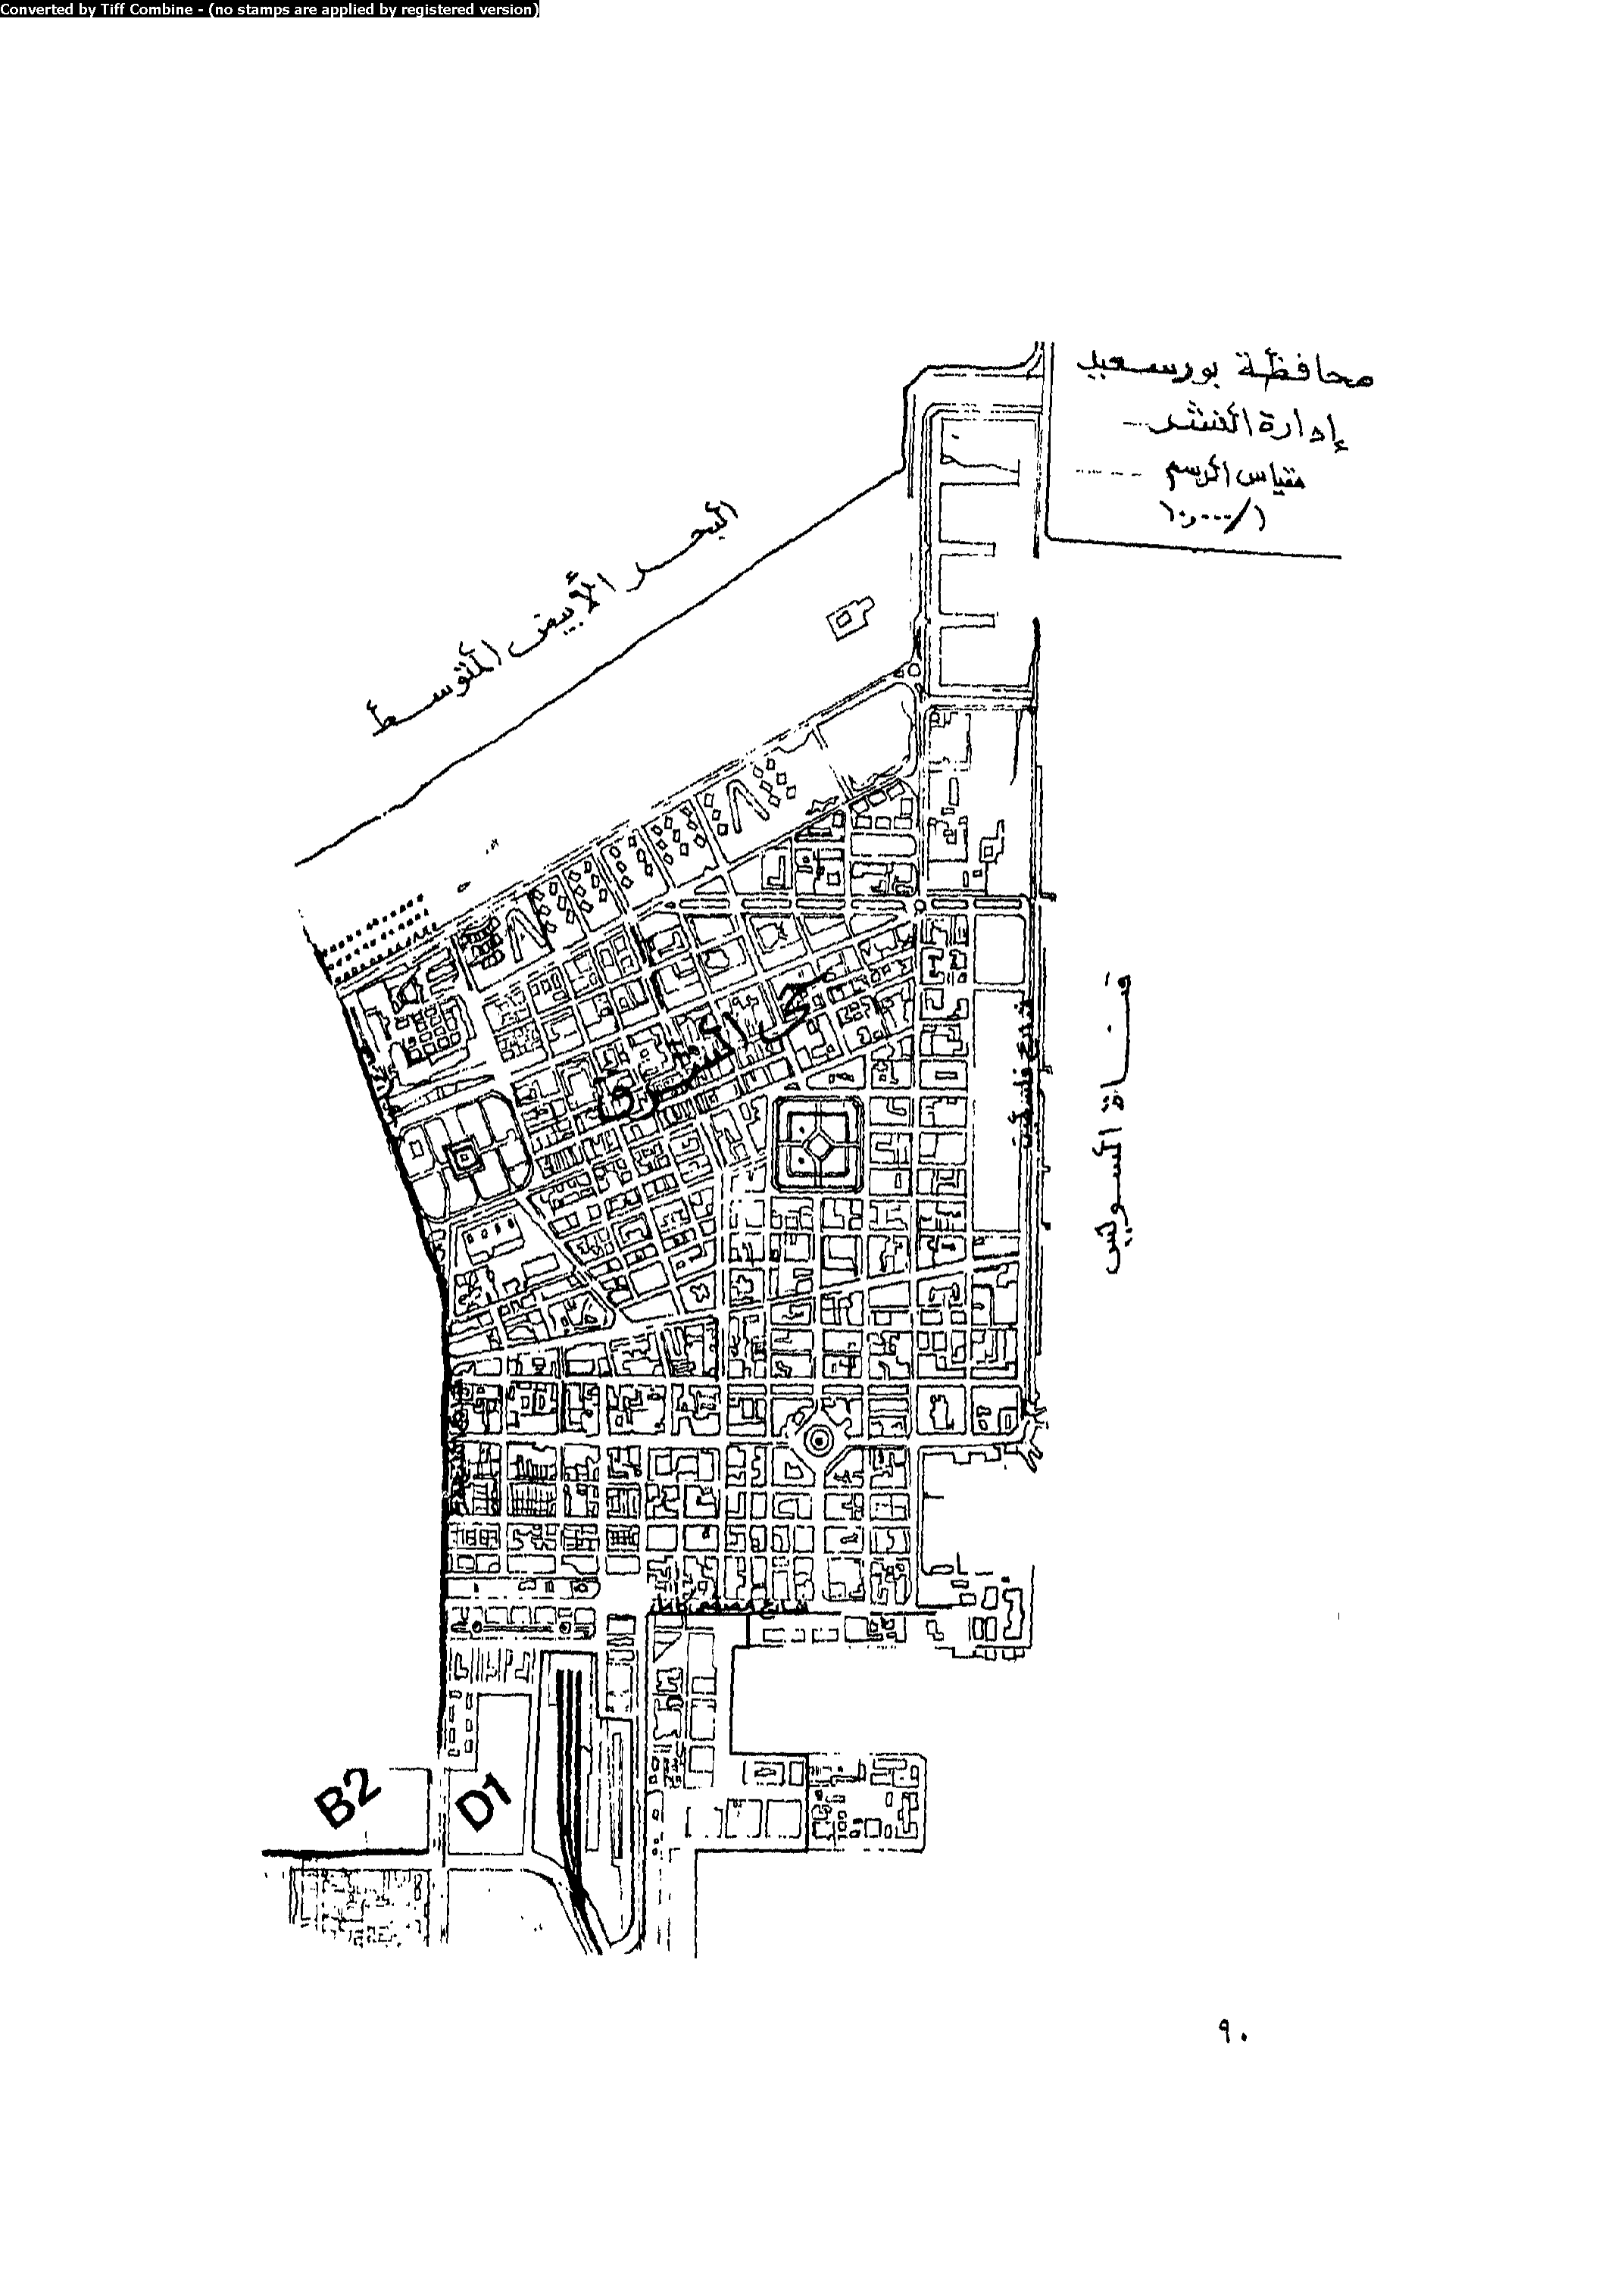 Converted by Tiff Combine - (no stamps are applied by registered version)
محافظة بورسعيد
إدارة النشر
مقياس الرسم
١/١٠٫٠٠٠
البحر الأبيض المتوسط
حى الشرق
شارع فلسطين
قناة السويس
شارع مصطفى كامل
B2
D1
٩٠